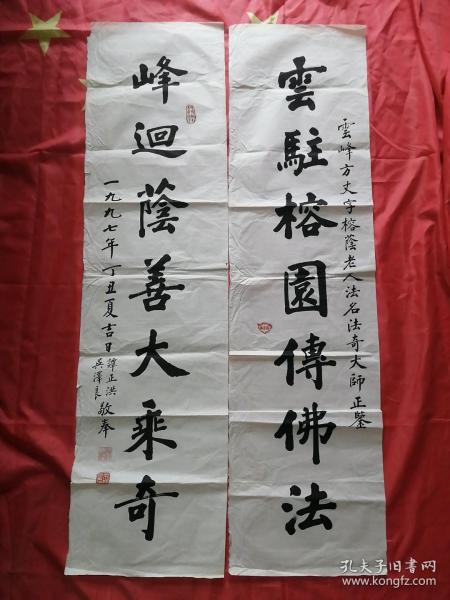 雲峰方丈字榕蔭老人法名法奇大師正鑒
雲駐榕園傳佛法
峰迴蔭善大乘奇
一九九七年丁丑夏吉日
譚正洪
吳澤良
敬奉
孔夫子旧书网
www.kongfz.com